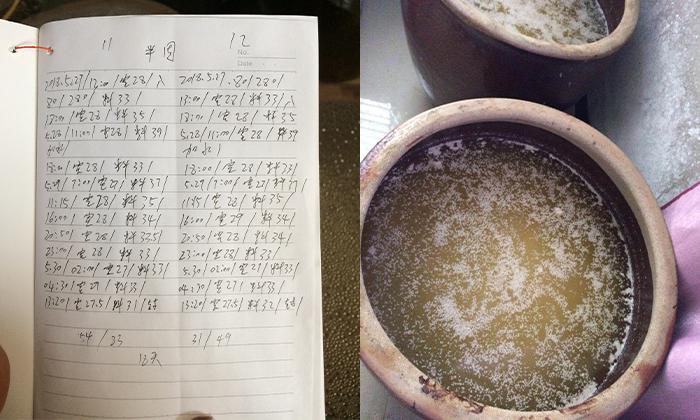 11 半固 12
No.
Date
2018.5.27/12:00/室28/入 2018.5.27. 80/280/
80/280/ 料33/ 13:00/室28/料33/入
18:00/室28/料35/ 18:00/室28/料35
5.28/11:00/室28/料39/ 5.28/11:00/室28/料39
加水/ 加水/
18:00/室28/料33/ 18:00/室28/料33/
5.29/7:00/室27/料37/ 5.29/7:00/室27/料
11:15/室28/料35/ 11:15/室28/料35/
16:00/室28/料34/ 16:00/室29/料34/
20:50/室28/料33.5/ 20:50/室28/料34/
23:00/室28/料33/ 23:00/室28/料33/
5.30/02:00/室27/料33/ 5.30/02:00/室27/料33/
04:30/室27/料33/ 04:30/室27/料33/
13:20/室27.5/料31/ 13:20/室27.5/料32/
54/33 31/49
12天